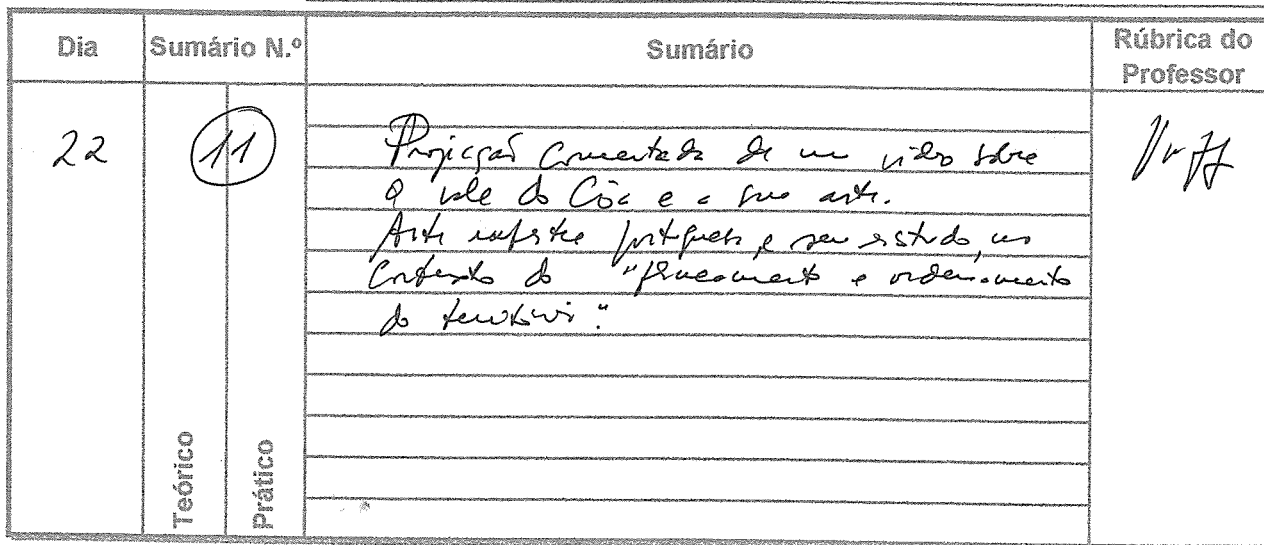 Dia Sumário N.º Sumário Rúbrica do Professor
22 11 Projecção comentada de um vídeo sobre
o vale do Côa e a sua arte.
Arte rupestre portuguesa, e seu estudo, no
contexto do "planeamento e ordenamento
do território".
Teórico
Prático